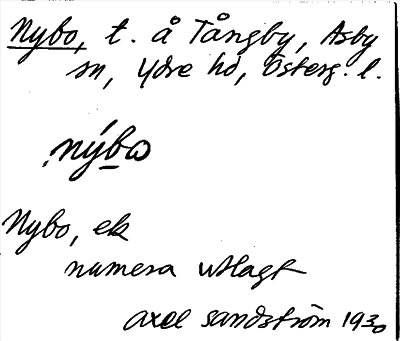 Nybo, t. å Tångby, Asby
sn, Ydre hd, Österg. l.
nýbω
Nybo, ek
numera utlagt
Axel Sandström 1930